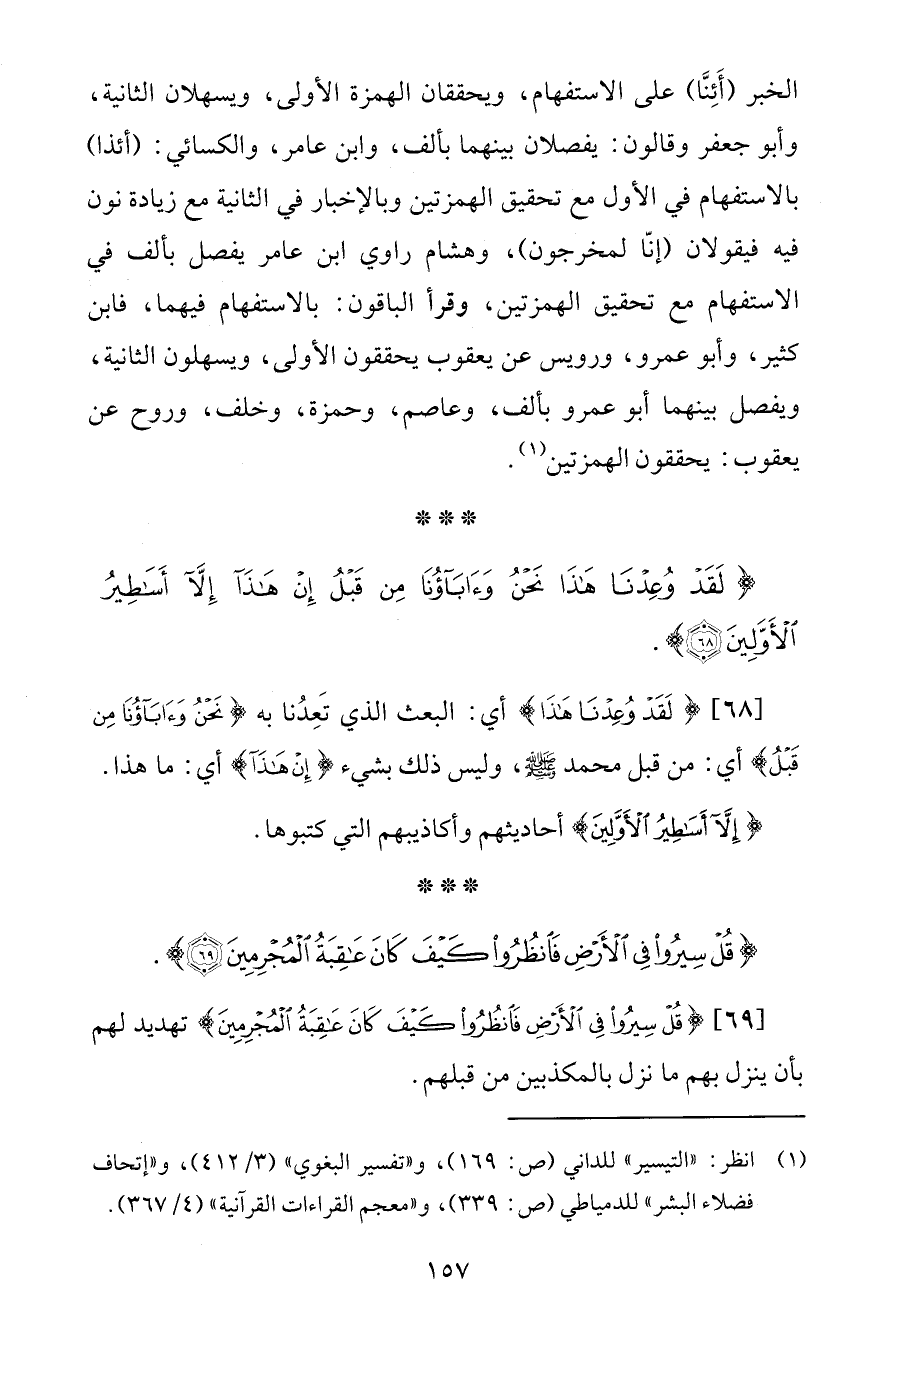 الخبر (أَئِنَّا) على الاستفهام، ويحققان الهمزة الأولى، ويسهلان الثانية،
وأبو جعفر وقالون: يفصلان بينهما بألف، وابن عامر، والكسائي: (أئذا)
بالاستفهام في الأول مع تحقيق الهمزتين وبالإخبار في الثانية مع زيادة نون
فيه فيقولان (إنّا لمخرجون)، وهشام راوي ابن عامر يفصل بألف في
الاستفهام مع تحقيق الهمزتين، وقرأ الباقون: بالاستفهام فيهما، فابن
كثير، وأبو عمرو، ورويس عن يعقوب يحققون الأولى، ويسهلون الثانية،
ويفصل بينهما أبو عمرو بألف، وعاصم، وحمزة، وخلف، وروح عن
يعقوب: يحققون الهمزتين(١).
***
﴿لَقَدْ وُعِدْنَا هَٰذَا نَحْنُ وَءَابَآؤُنَا مِن قَبْلُ إِنْ هَٰذَآ إِلَّآ أَسَٰطِيرُ
ٱلْأَوَّلِينَ ٦٨﴾.
[٦٨] ﴿لَقَدْ وُعِدْنَا هَٰذَا﴾ أي: البعث الذي تَعِدُنا به ﴿نَحْنُ وَءَابَآؤُنَا مِن
قَبْلُ﴾ أي: من قبل محمد ﷺ، وليس ذلك بشيء ﴿إِنْ هَٰذَآ﴾ أي: ما هذا.
﴿إِلَّآ أَسَٰطِيرُ ٱلْأَوَّلِينَ﴾ أحاديثهم وأكاذيبهم التي كتبوها.
***
﴿قُلْ سِيرُوا۟ فِى ٱلْأَرْضِ فَٱنظُرُوا۟ كَيْفَ كَانَ عَٰقِبَةُ ٱلْمُجْرِمِينَ ٦٩﴾.
[٦٩] ﴿قُلْ سِيرُوا۟ فِى ٱلْأَرْضِ فَٱنظُرُوا۟ كَيْفَ كَانَ عَٰقِبَةُ ٱلْمُجْرِمِينَ﴾ تهديد لهم
بأن ينزل بهم ما نزل بالمكذبين من قبلهم.
(١) انظر: «التيسير» للداني (ص: ١٦٩)، و«تفسير البغوي» (٣/ ٤١٢)، و«إتحاف
فضلاء البشر» للدمياطي (ص: ٣٣٩)، و«معجم القراءات القرآنية» (٤/ ٣٦٧).
١٥٧